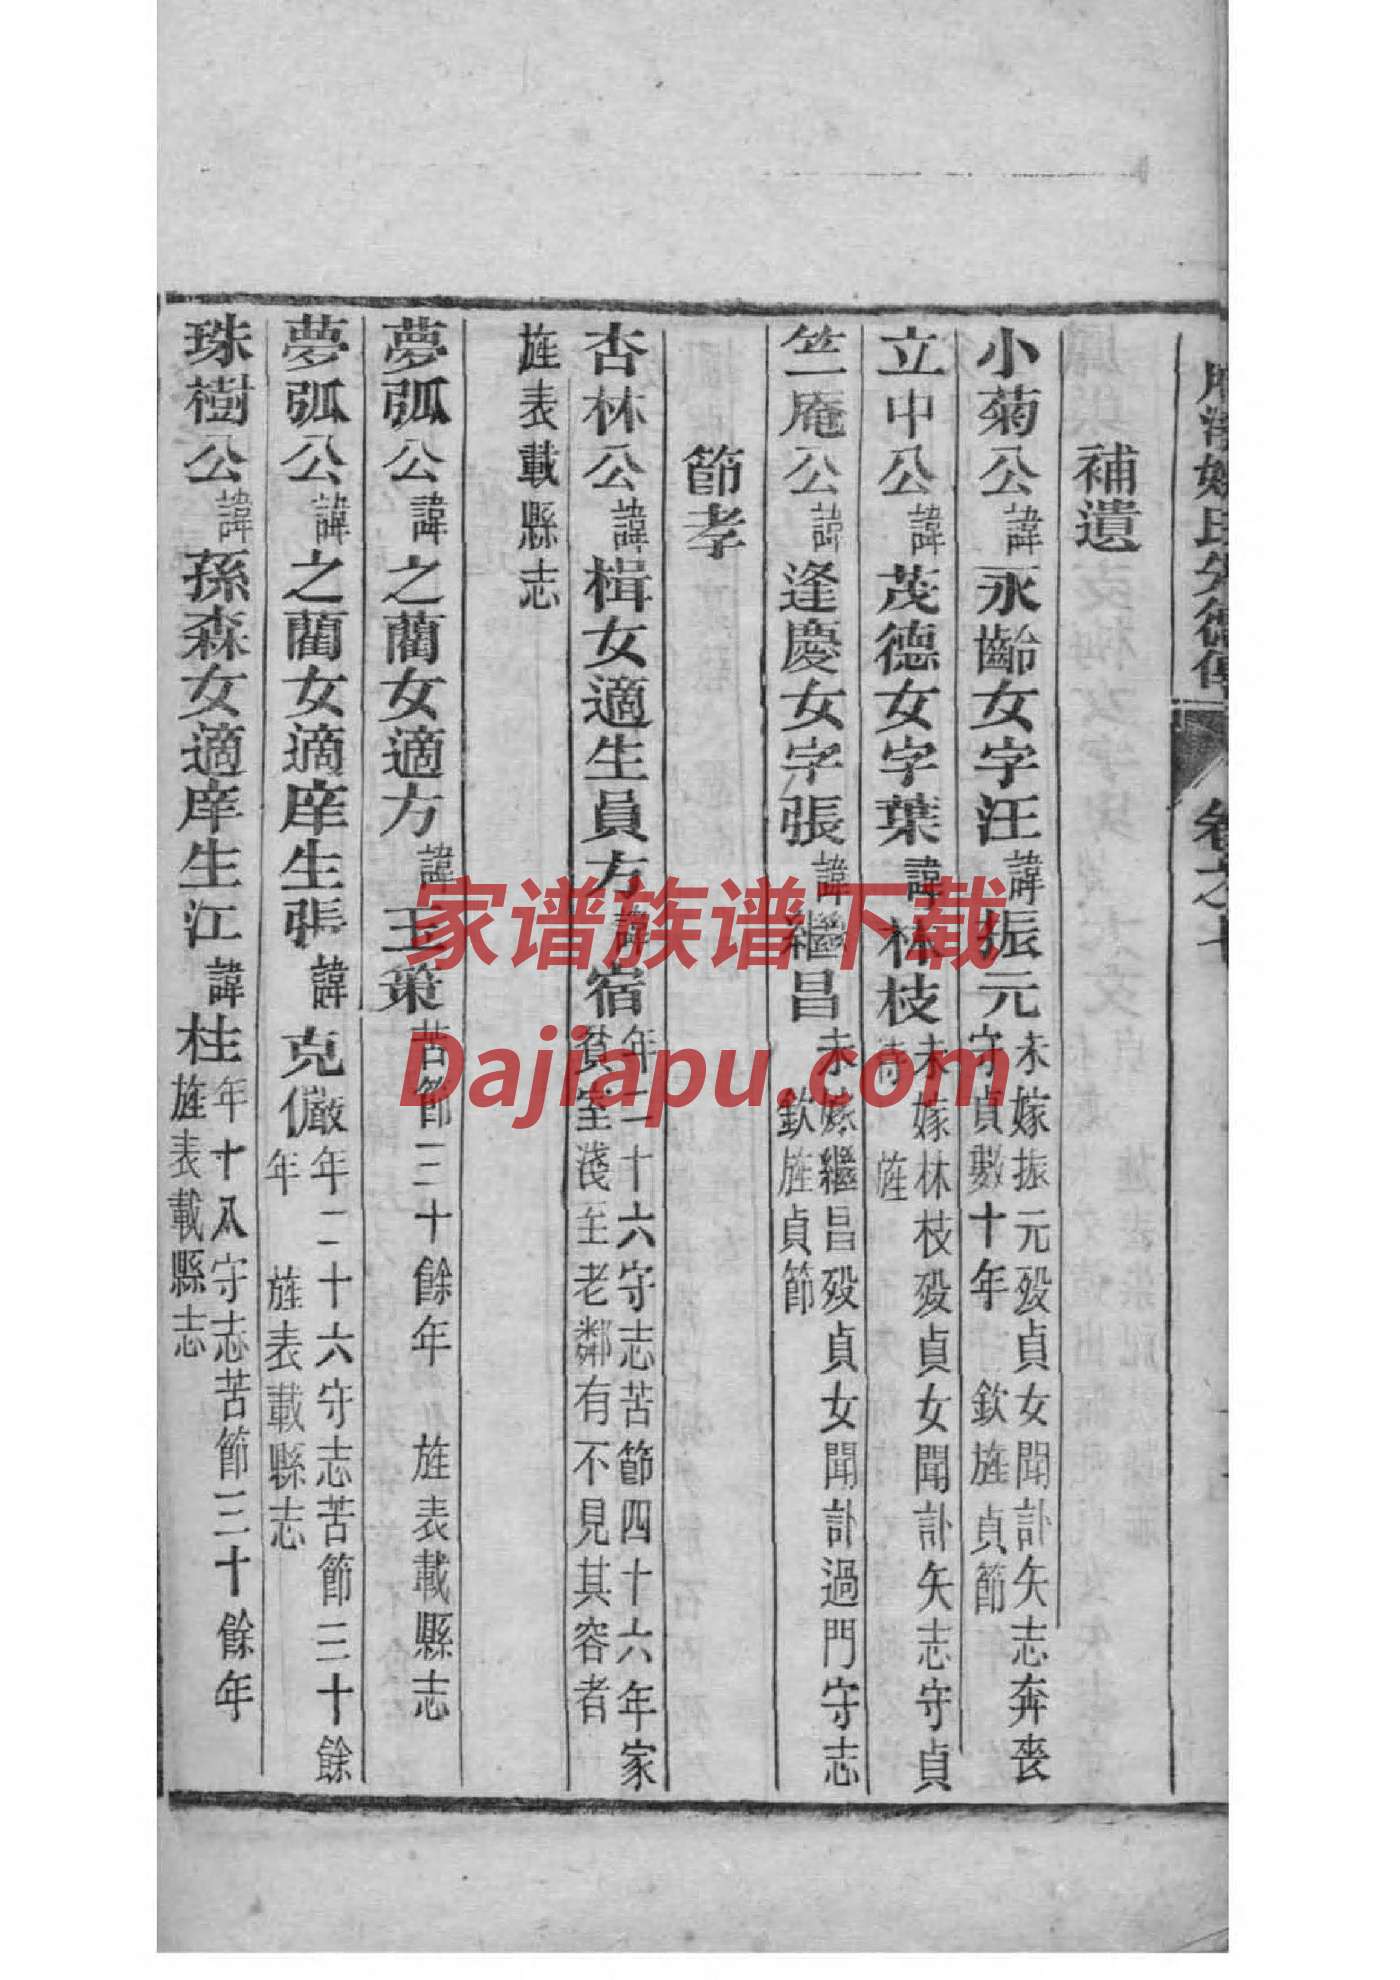 氏先德傳 卷之七
補遺
小菊公諱永齡女字汪諱振元未嫁振元殁貞女聞訃矢志奔喪守貞數十年 欽旌貞節
立中公諱茂德女字葉諱林枝未嫁林枝殁貞女聞訃矢志守貞待旌
竺庵公諱逢慶女字張諱繼昌未嫁繼昌殁貞女聞訃過門守志 欽旌貞節
節孝
杏林公諱楫女適生員方諱宿年二十六守志苦節四十六年家貧室淺至老鄰有不見其容者
旌表載縣志
夢弧公諱之藺女適方諱玉策苦節三十餘年 旌表載縣志
夢弧公諱之藺女適庠生張諱克儼年二十六守志苦節三十餘年 旌表載縣志
珠樹公諱孫森女適庠生江諱柱年十八守志苦節三十餘年旌表載縣志
家谱族谱下载
Dajiapu.com